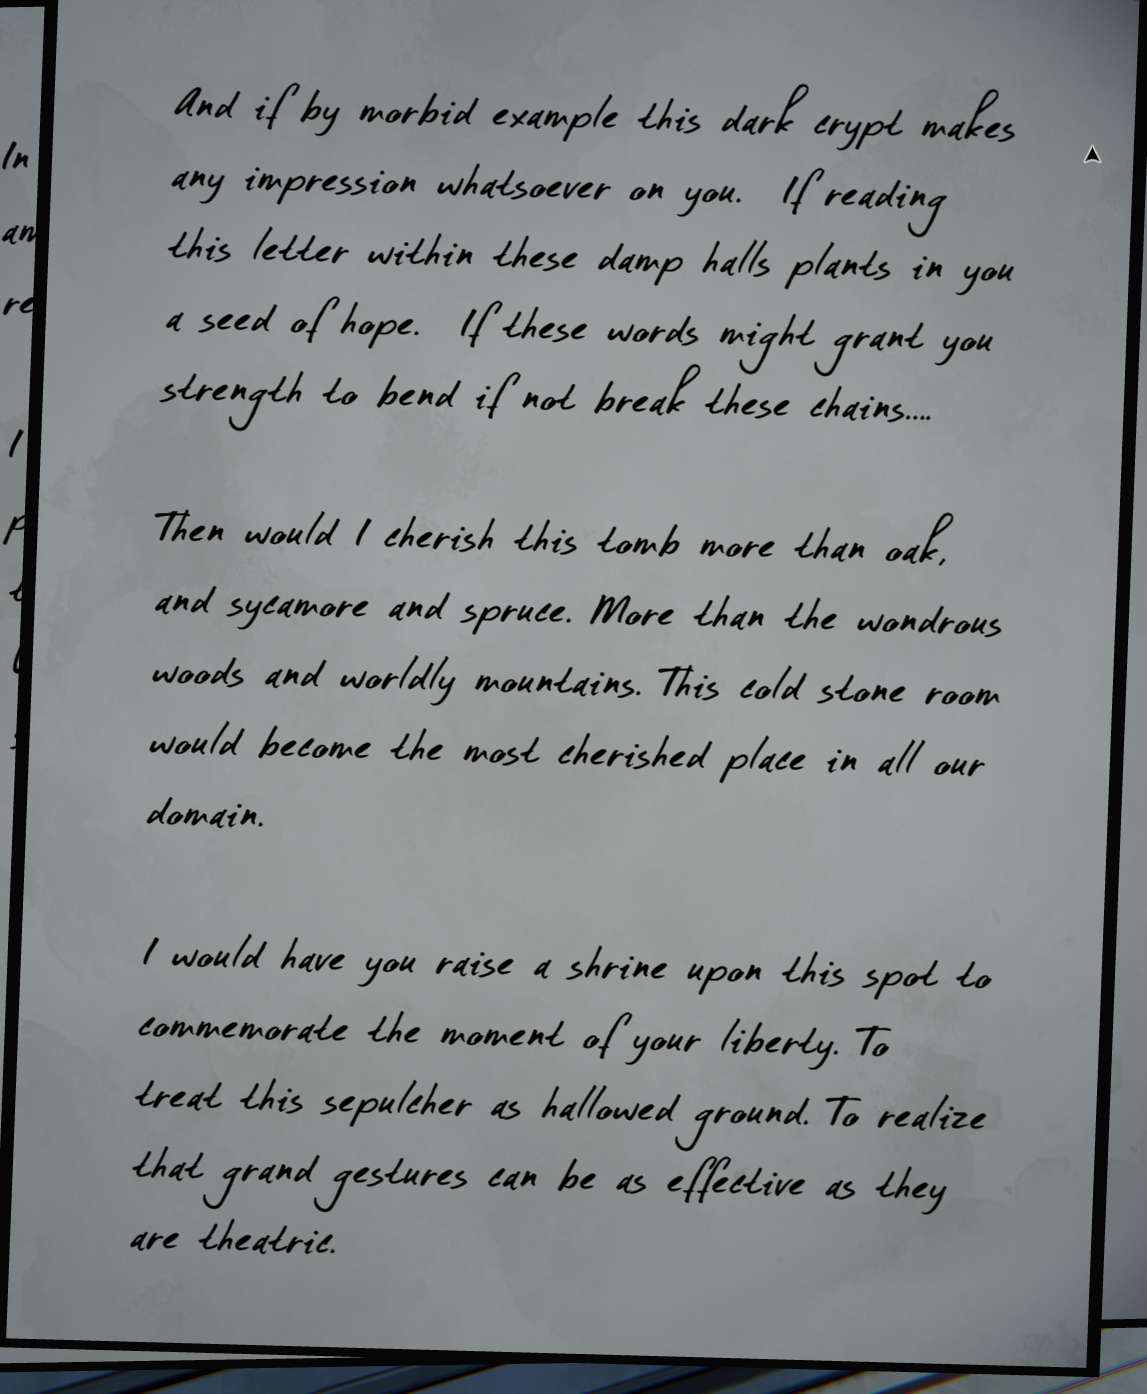 And if by morbid example this dark crypt makes
any impression whatsoever on you. If reading
this letter within these damp halls plants in you
a seed of hope. If these words might grant you
strength to bend if not break these chains....
Then would I cherish this tomb more than oak,
and sycamore and spruce. More than the wondrous
woods and worldly mountains. This cold stone room
would become the most cherished place in all our
domain.
I would have you raise a shrine upon this spot to
commemorate the moment of your liberty. To
treat this sepulcher as hallowed ground. To realize
that grand gestures can be as effective as they
are theatric.